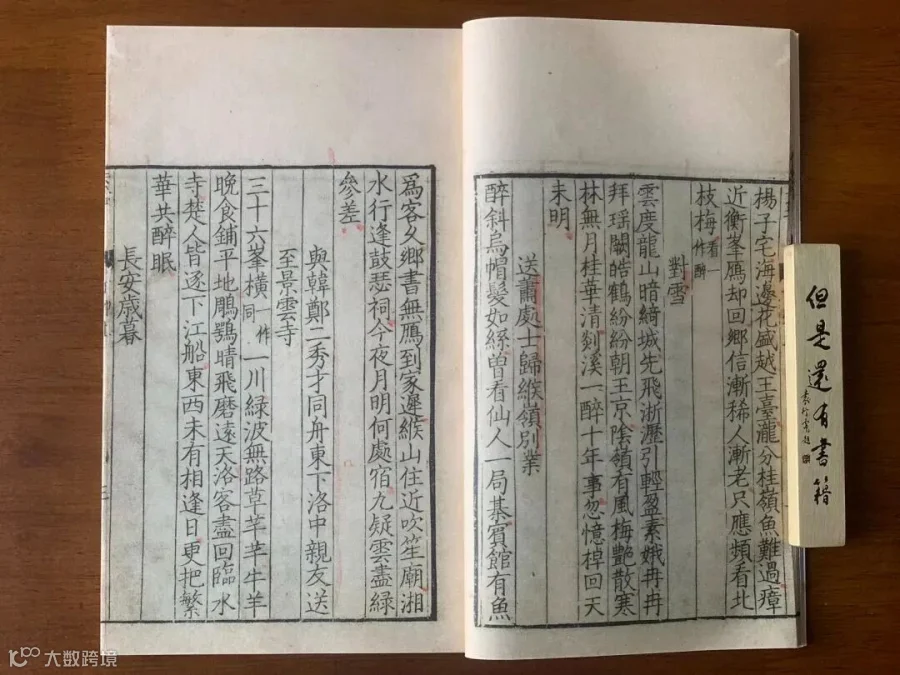 楊子宅海邊花盛越王臺瀧分桂嶺魚難過瘴
近衡峯鴈却回鄉信漸稀人漸老只應頻看北
枝梅看一作醉
對雪
雲度龍山暗綺城先飛淅瀝引輕盈素娥冉冉
拜瑤闕皓鶴紛紛朝玉京陰嶺看風梅艷散寒
林無月桂華清剡溪一醉十年事忽憶棹回天
未明
送蕭處士歸緱嶺別業
醉斜烏帽髮如絲曾看仙人一局棊賓館有魚
爲客久鄉書無鴈到家遲緱山住近吹笙廟湘
水行逢鼓瑟祠今夜月明何處宿九疑雲盡綠
參差
與韓鄭二秀才同舟東下洛中親友送
至景雲寺
三十六峯橫一作同一川綠波無路草芊芊牛羊
晚食鋪平地鵰鶚晴飛磨遠天洛客盡回臨水
寺楚人皆逐下江船東西未有相逢日更把繁
華共醉眠
長安歲暮
三
但是還有書籍
大数跨境